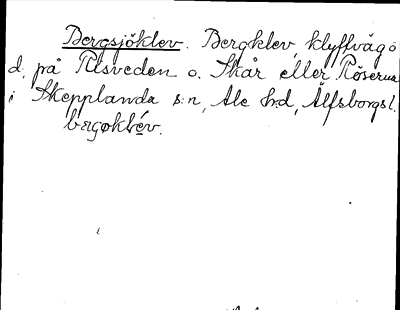 Bergsjöklev. Bergklev, klyffväg ö
d. på Risveden o. Skår eller Röserna
i Skepplanda s:n, Ale h:d, Älfsborgs l.
bærgoklèv.